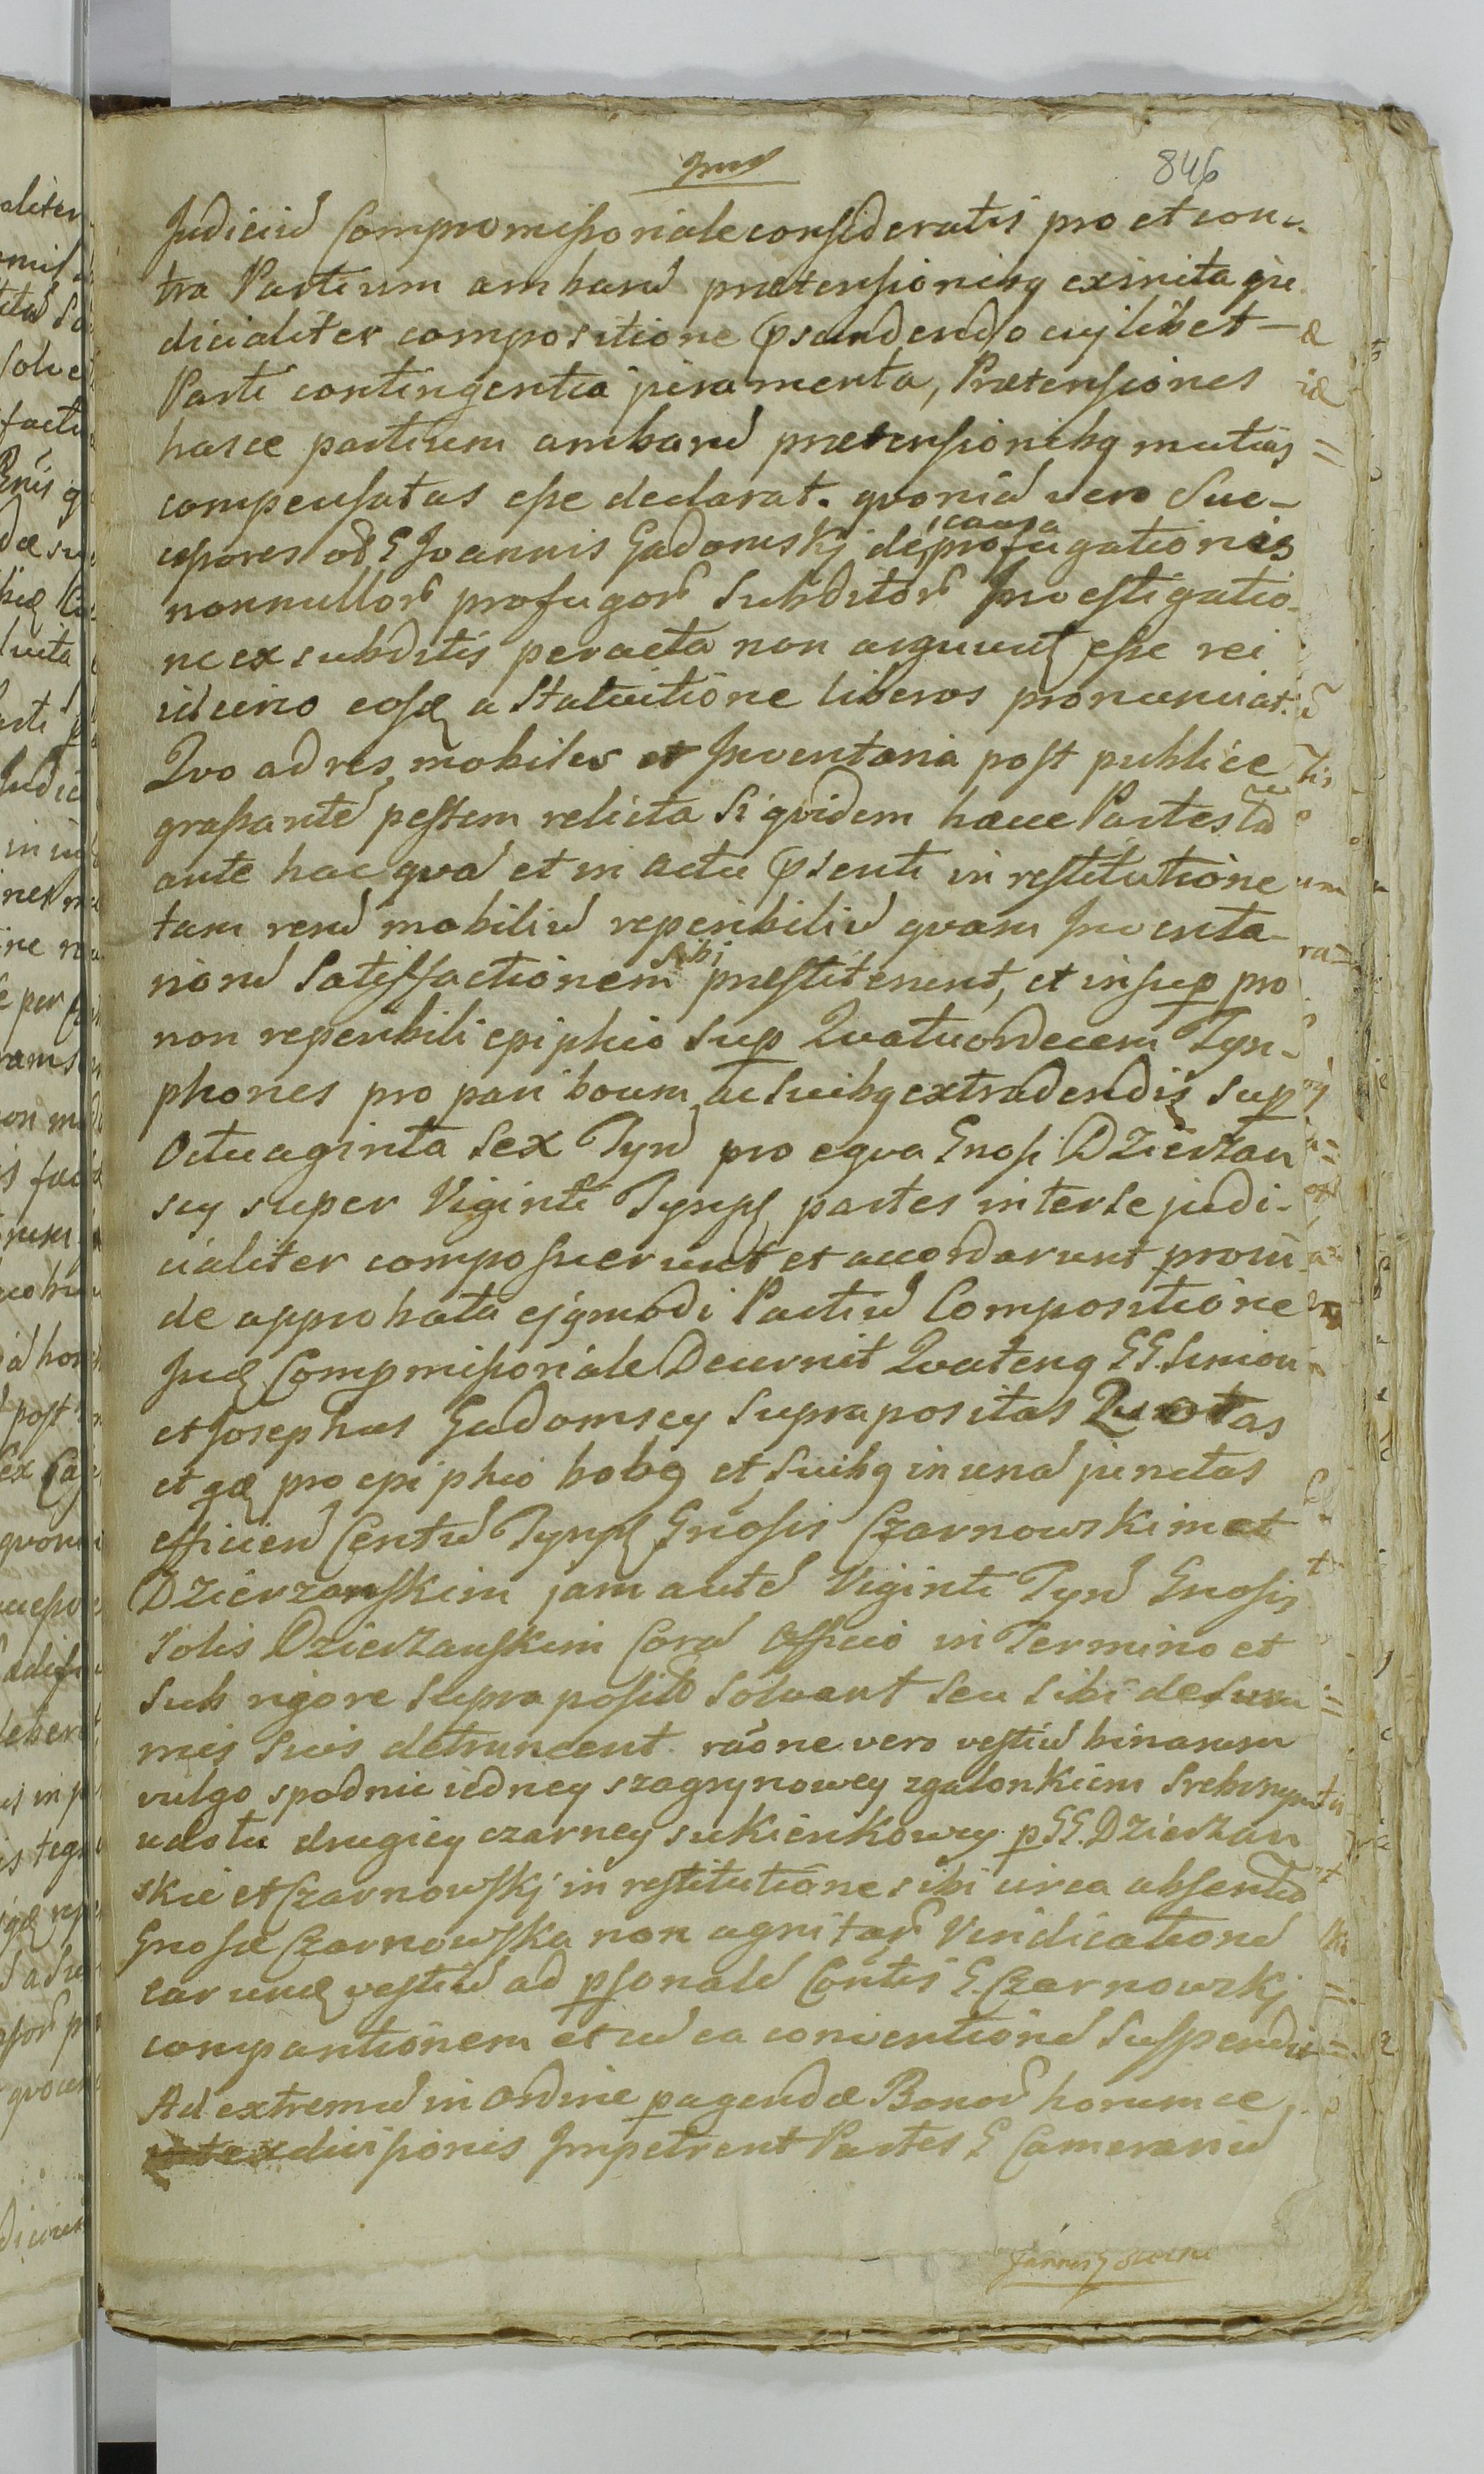 846
Judiciu Compromissoriale consideratis pro et con-
tra Partium ambaru prætensionibq exinita gu
dicialiter compositione Psandendo cujlibet
Parti contingentia juramenta, Prætensiones
hasce partium ambaru prætensionibq mutuis
compensatas esse declarat. qvonia vero Suc-
cessores od G Joannis Gadomskj de profugationis
causa
nonnullor profugor Subditor Investigatio-
ne ex subditis peracta non arguunt esse rei
ideino eosd a Statuitione liberos pronunciat.
Qvo ad res mobiles et Inventaria post publice
grassante pestem relicta Siqvidem hæce Partes ta
ante hac qva et in actu Psenti in restitutione
tam reru mobiliu reperibiliu qvam Inventa-
rioru Satisfactionem sibi præstiterunt, et insup pro
non reperibili epiphio Sup Qvatuordecem Tyn-
phones pro pari boum ac Suibq extradendis Sup
Octuaginta Sex Tyn pro eqva Gnosi Dzierżan
scy super Viginti Tynph partes inter se judi-
cialiter composuerunt et accordarunt proin
de approbata ejqmodi Partiu Compositione
Jud Compmissoriale Decernit Qvatenq GG. Simon
et Josephus Gadomscy Suprapositas Quotas
et qd pro epiphio bobq et Suibq in una junctas
efficien Centu Tynph Gnosis Czarnowskim et
Dzierzanskim jam aute Viginti Tyn Gnosis
solis Dzierżanskim Cora Officio in Termino et
Sub rigore supra posito Solvant seu sibi de sum
mis Suis detruncent. raone vero vestiu binarum
vulgo spodnic iedney szagrynowey zgalonkiem Srebrnym
udołu drugiey czarney sukienkowey p GG. Dzierżan
skie et Czarnowskj in restitutione sibi circa absentia
Gnosæ Czarnowska non agnitar Vindicatione
earund vestiu ad psonale Contis G. Czarnowskj
comparitionem et ad ea conventione Suspendit
Ad extremu in ordine pagendæ Bonor horumce
divisionis Impetrent Partes G Camerariu